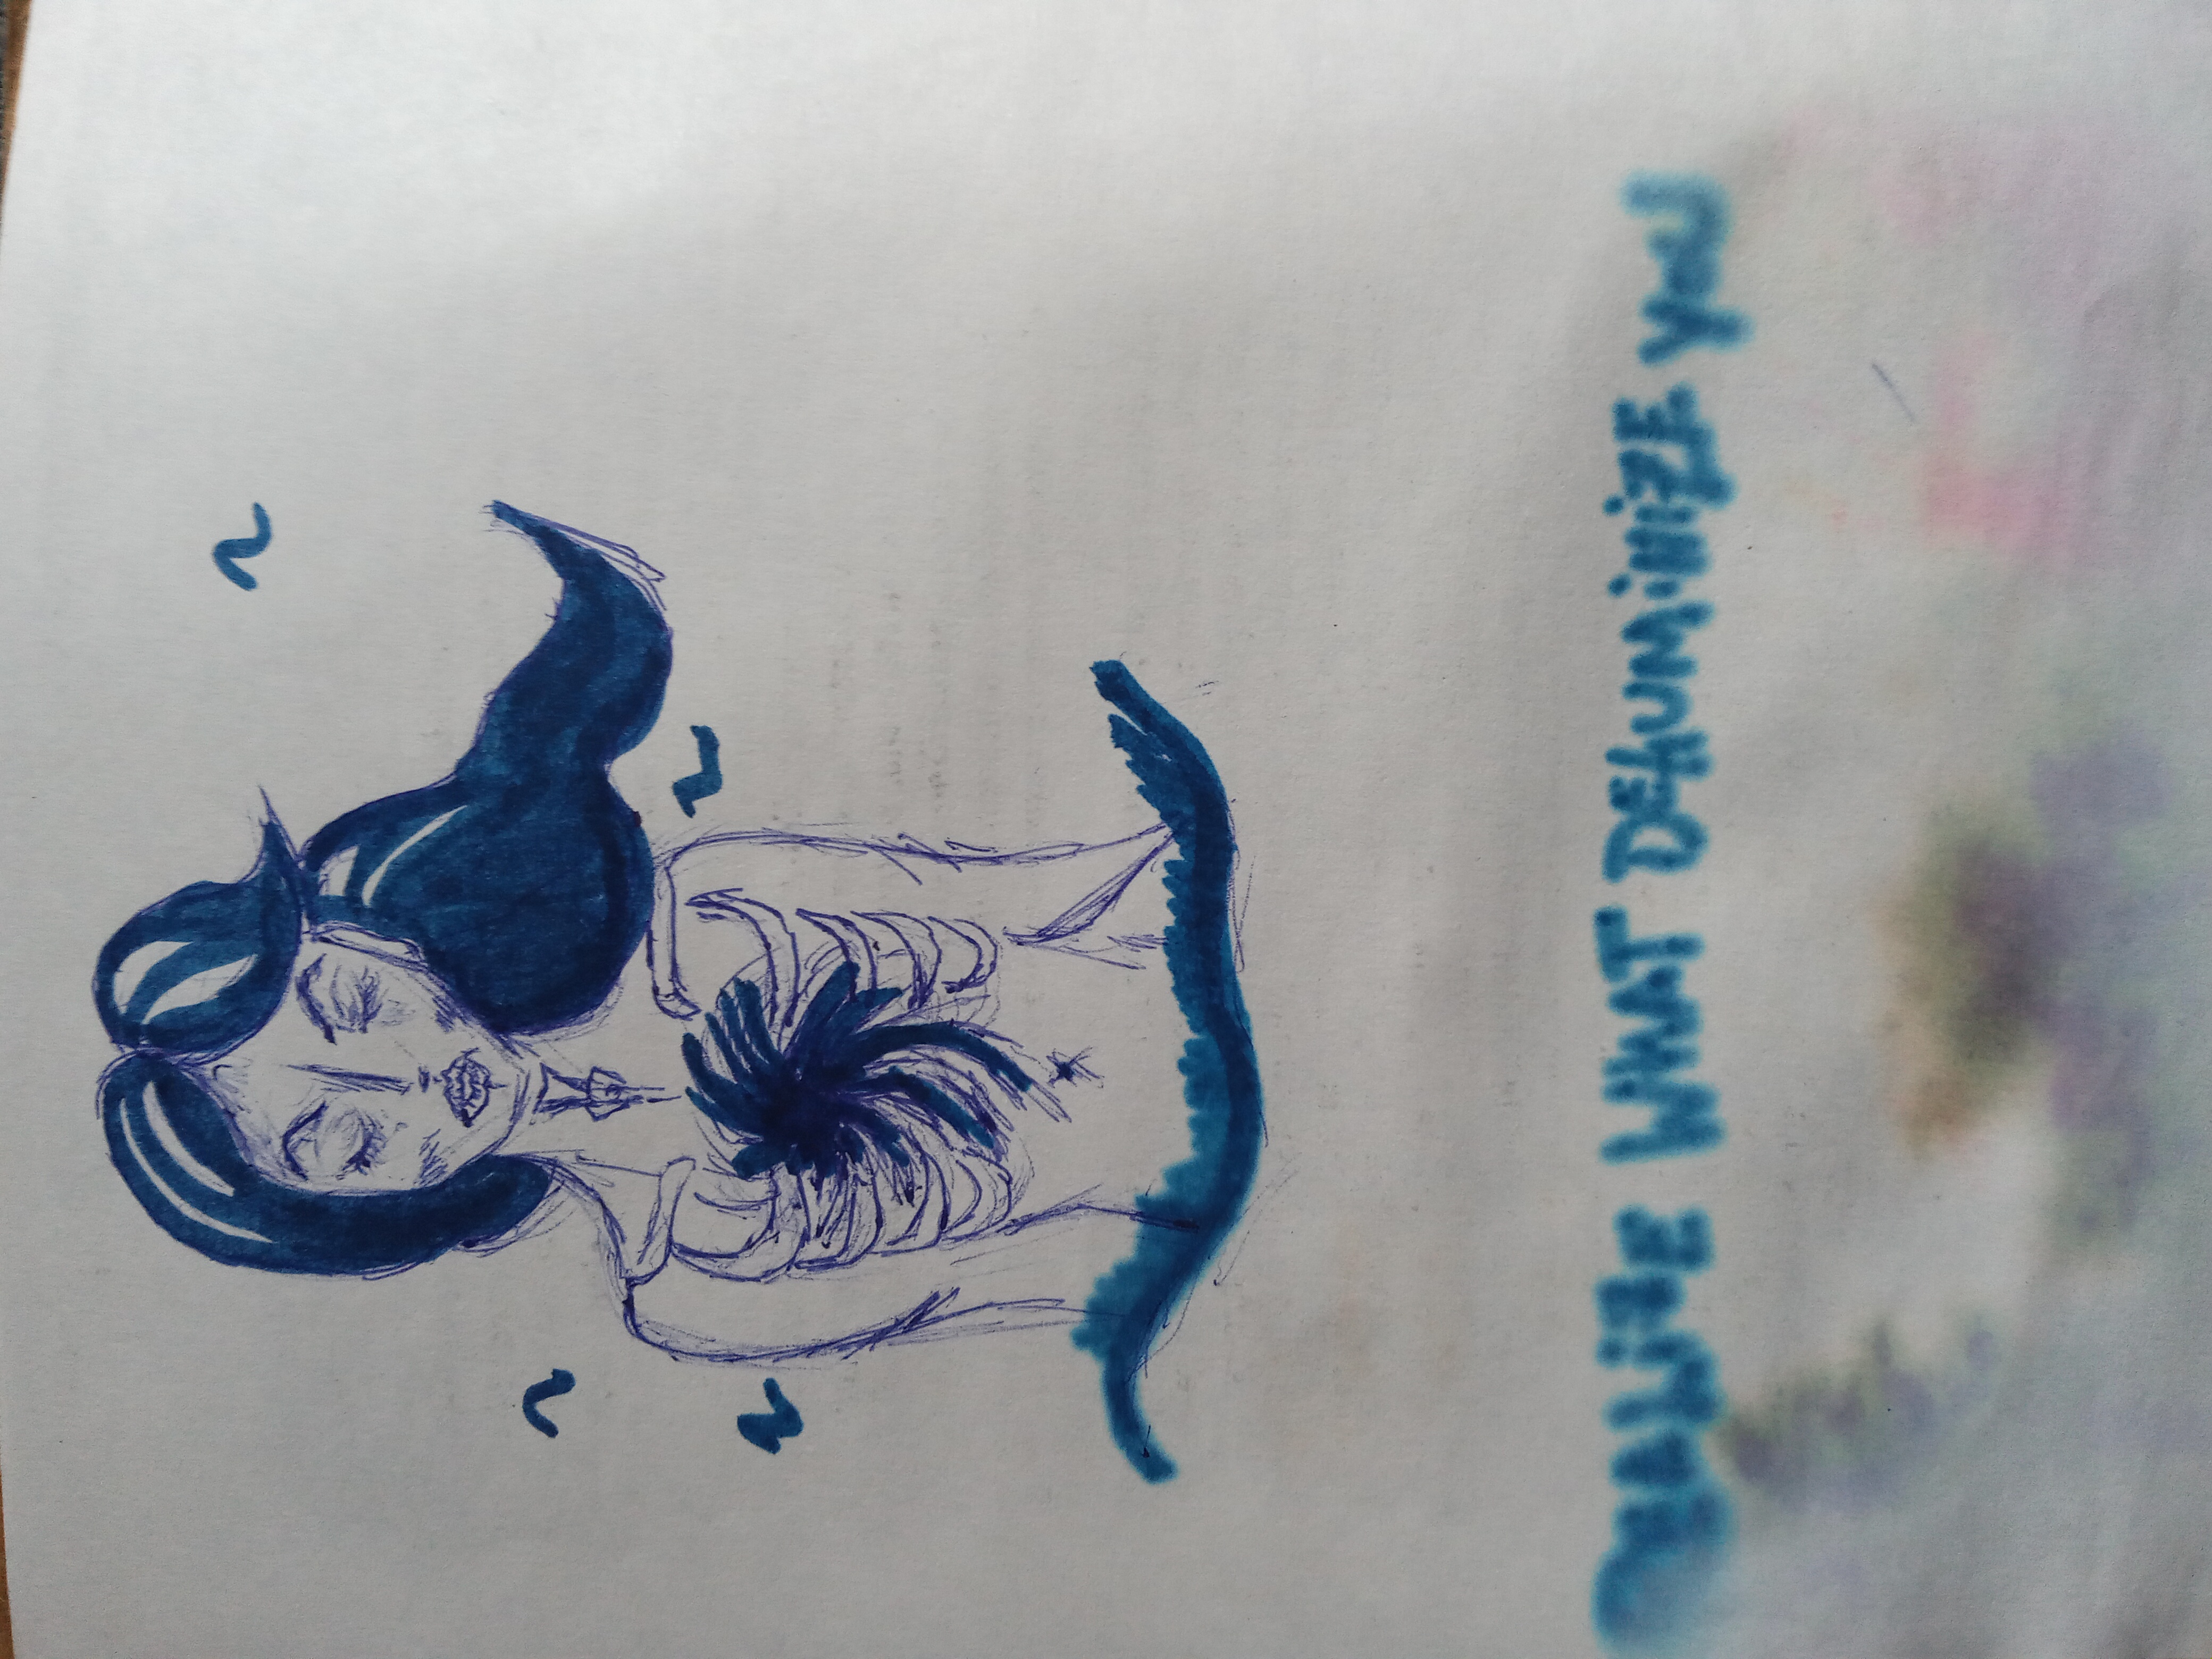 REALiZE WHAT DEHUMiNiZE YOU